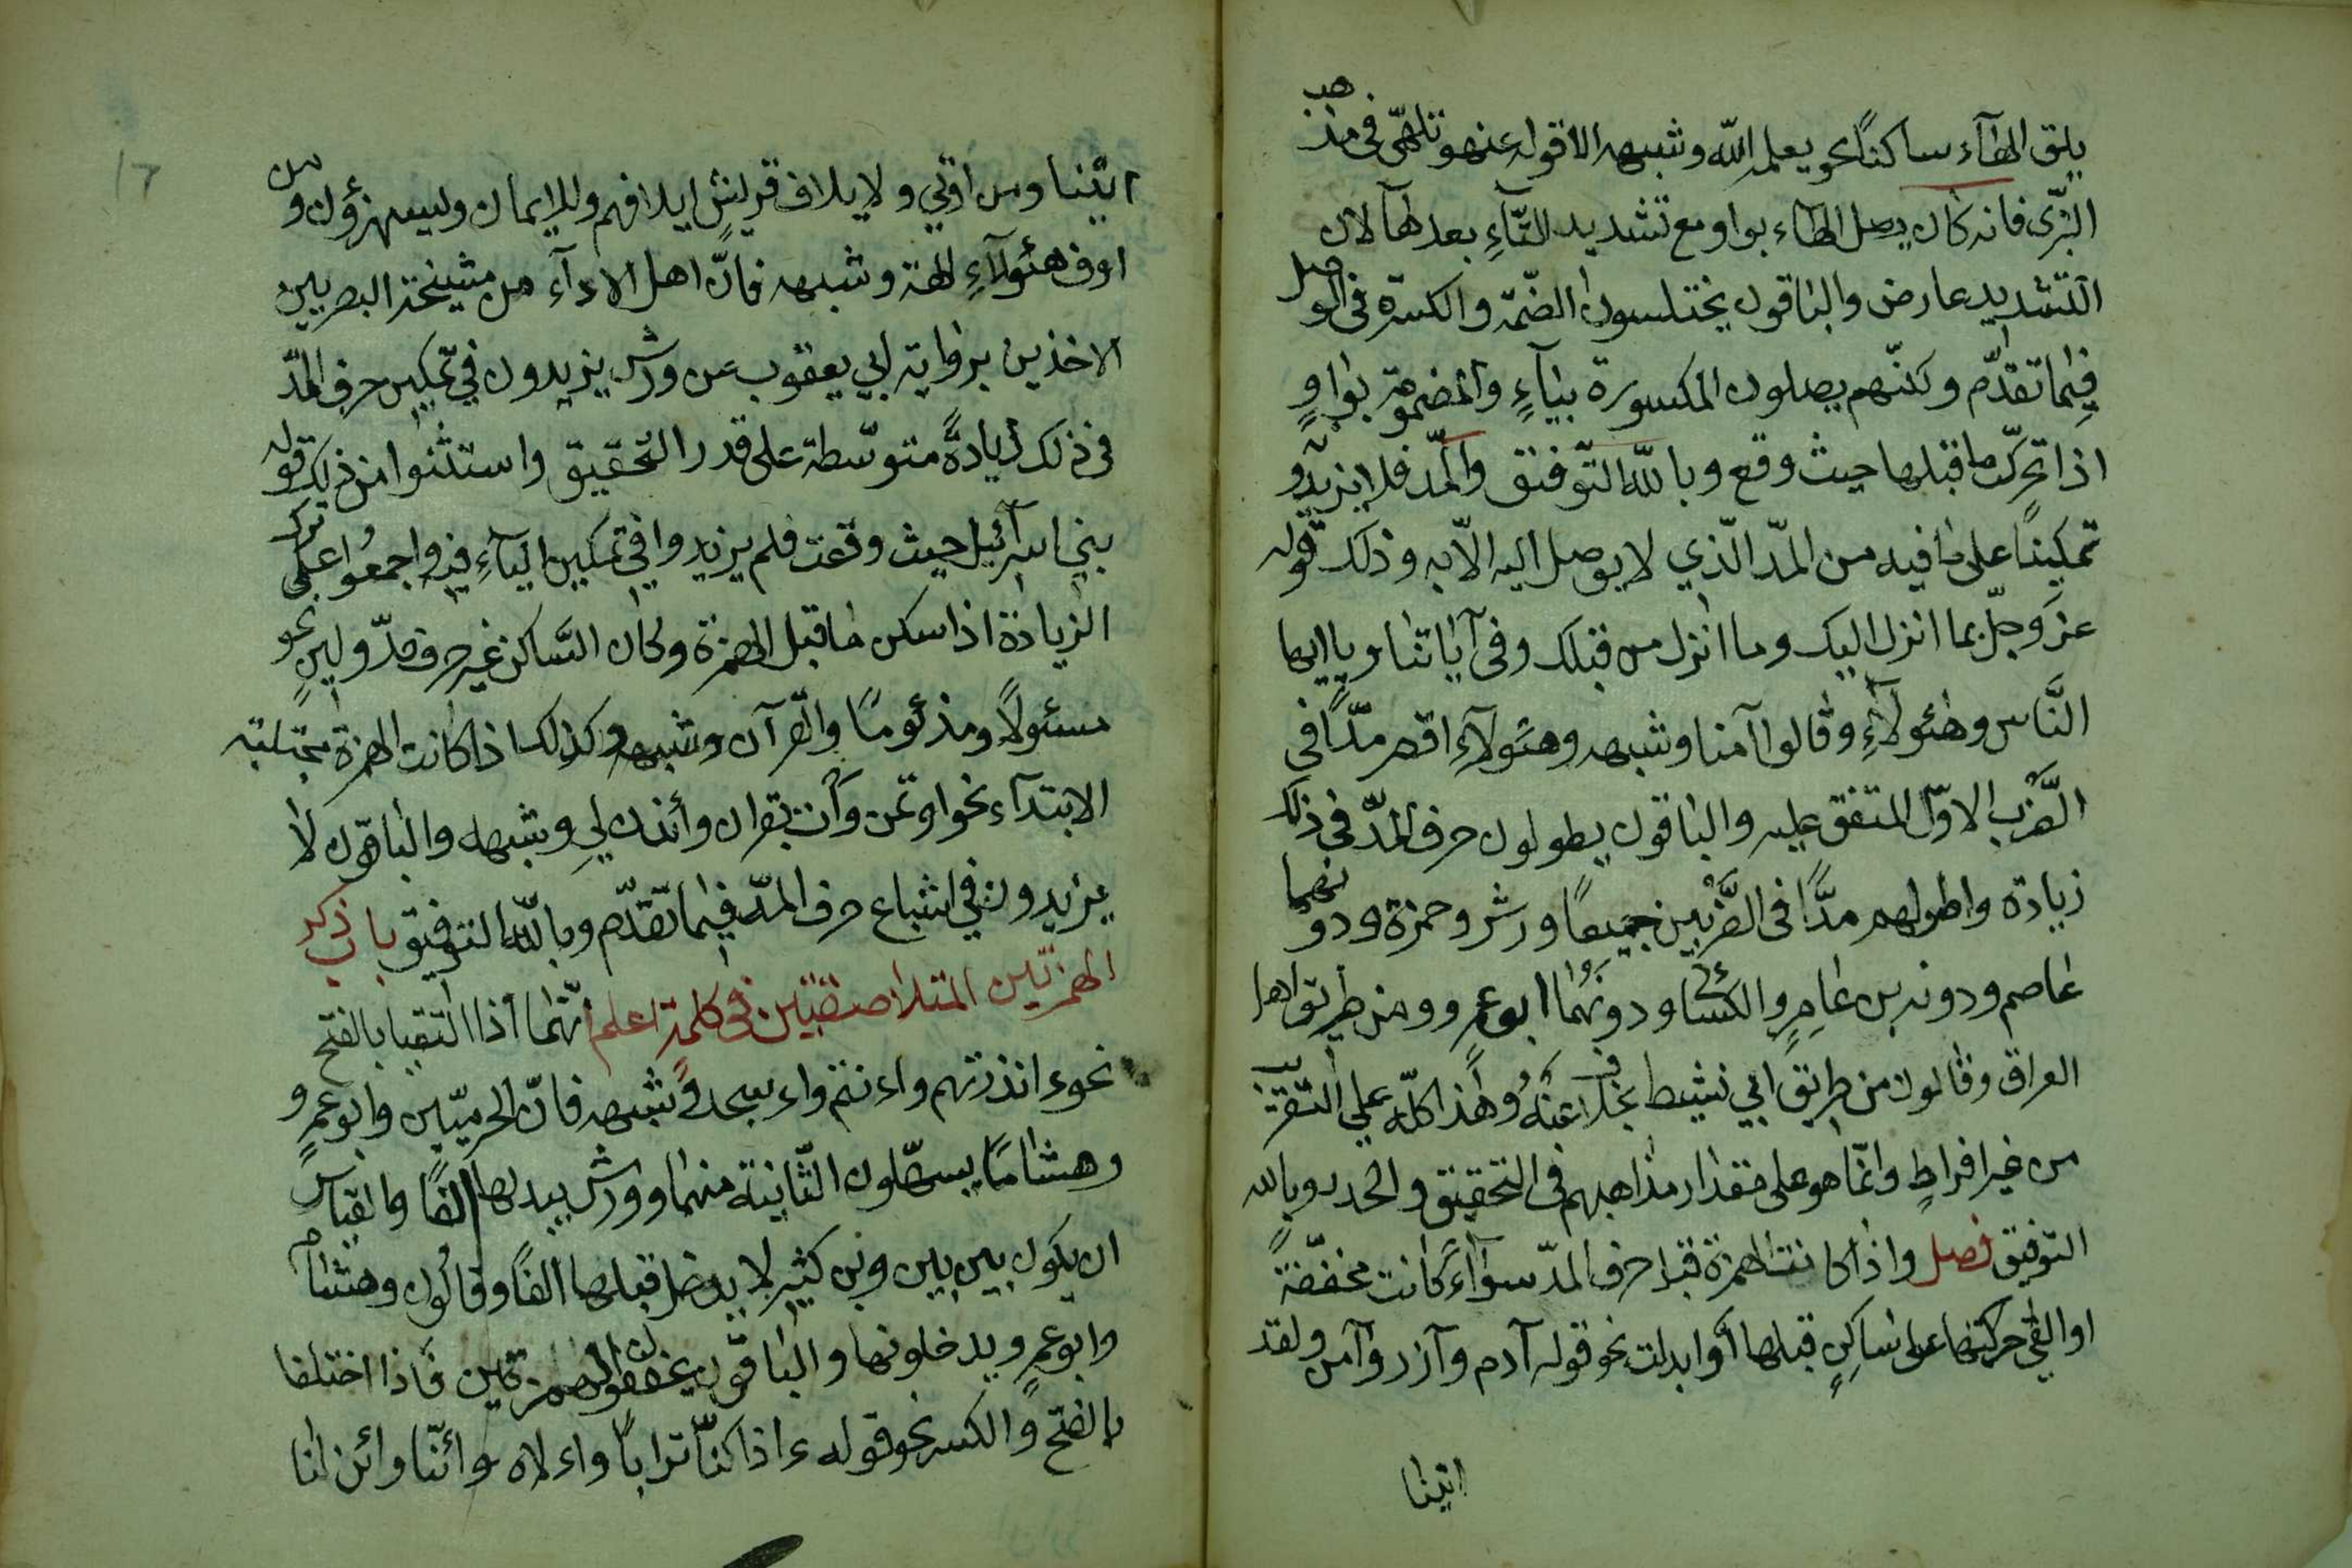 يلق الهآء ساكنًا نحو يعلمه الله وشبهه الا قوله عنهو تلهّى فى مذهب
البزّى فانه كان يصل الهاء بواو مع تشديد التّآءِ بعدها لان
التشديد عارض والباقون يختلسون الضمّة والكسرة فى الوصل
فيما تقدّم وكلّهم يصلون المكسورة بيآءٍ والمضمومة بواوٍ
اذا تحرّك ما قبلها حيث وقع وبالله التّوفيق والمّد فلا يزيدو
تمكينًا على ما فيه من المدّ الّذي لا يوصل اليه الّا به وذلك قوله
عزّ وجلّ بما انزل اليك وما انزل من قبلك وفى آياتنا ويا ايها
النّاس وهئولآءِ وقالوا آمنا وشبهه وهئولآء اقصر مدًّا فى
الضّرب الاوّل المتفق عليه والباقون يطولون حرف المدّ فى ذلك
زيادة واطولهم مدًّا فى الضّربين جميعًا ورش وحمزة ودونهما
عاصم ودونه بن عامرٍ والكسائى ودونهما ابو عمرو ومن طريق اهل
العراق وقالون من طريق ابي نشيط بخلافٍ عنهُ وهذا كلّه على التقريب
من غير افراطٍ وانّما هو على مقدار مذاهبهم فى التحقيق والحدر وبالله
التوفيق فصل واذا كانت الهمزة قبل حرف المدّ سوآءً كانت محققةً
او القى حركتها على ساكنٍ قبلها او ابدلت نحو قوله آدم وآزر وآمن ولقد
اتينا
اتينا ومن اوتي ولايلاف قريشٍ ايلافهم وللايمان وليستهزؤن ومن
اوف هئولآءِ الهة وشبهه فانّ اهل الادآء من مشيخة البصريين
الاخذين برواية ابي يعقوب عن ورش يزيدون في تمكين حرف المدّ
فى ذلك زيادةً متوسّطة على قدر التحقيق واستثنوا من ذلك قوله
بني اسرآئيل حيث وقعت فلم يزيدوا في تمكين اليآءِ فيه واجمعوا على ترك
الزيادة اذا سكن ما قبل الهمزة وكان السّاكن غير حرف مدّ ولينٍ نحو
مسئولاً ومذئومًا والقرآن وشبهه وكذلك اذا كانت الهمزة مجتلبة
الابتدآء نحو اوتمن وأت بقران وأئذن لي وشبهه والباقون لا
يزيدون في اشباع حرف المدّ فيما تقدّم وبالله التوفيق باب ذكر
الهمزتين المتلاصقتين فى كلمة اعلم انّهما اذا التقيا بالفتح
نحو ءانذرتهم واءنتم واءسجد وشبهه فانّ الحرميّين وابو عمرٍو
وهشامًا يسهّلون الثّانية منهما وورش يبدلها الفًا والقياس
ان يكون بين بين وبن كثير لا يدخل قبلها الفًا وقالون وهشام
وابو عمرو يدخلونها والباقون يخففون الهمزتين فاذا اختلفا
بالفتح والكسر نحو قوله ءاذا كنّا ترابًا واءلاه وائنّا وائن لنا